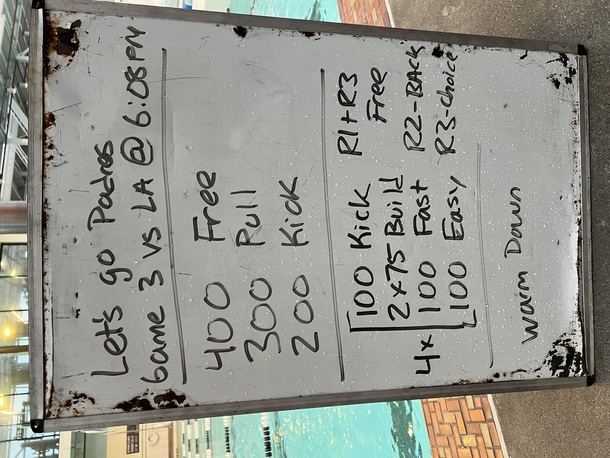 Let's go Padres
Game 3 vs LA @ 6:08PM
400 Free
300 Pull
200 Kick
100 Kick R1+R3
2x75 Build Free
4x 100 Fast R2-BACK
100 Easy R3-Choice
Warm Down